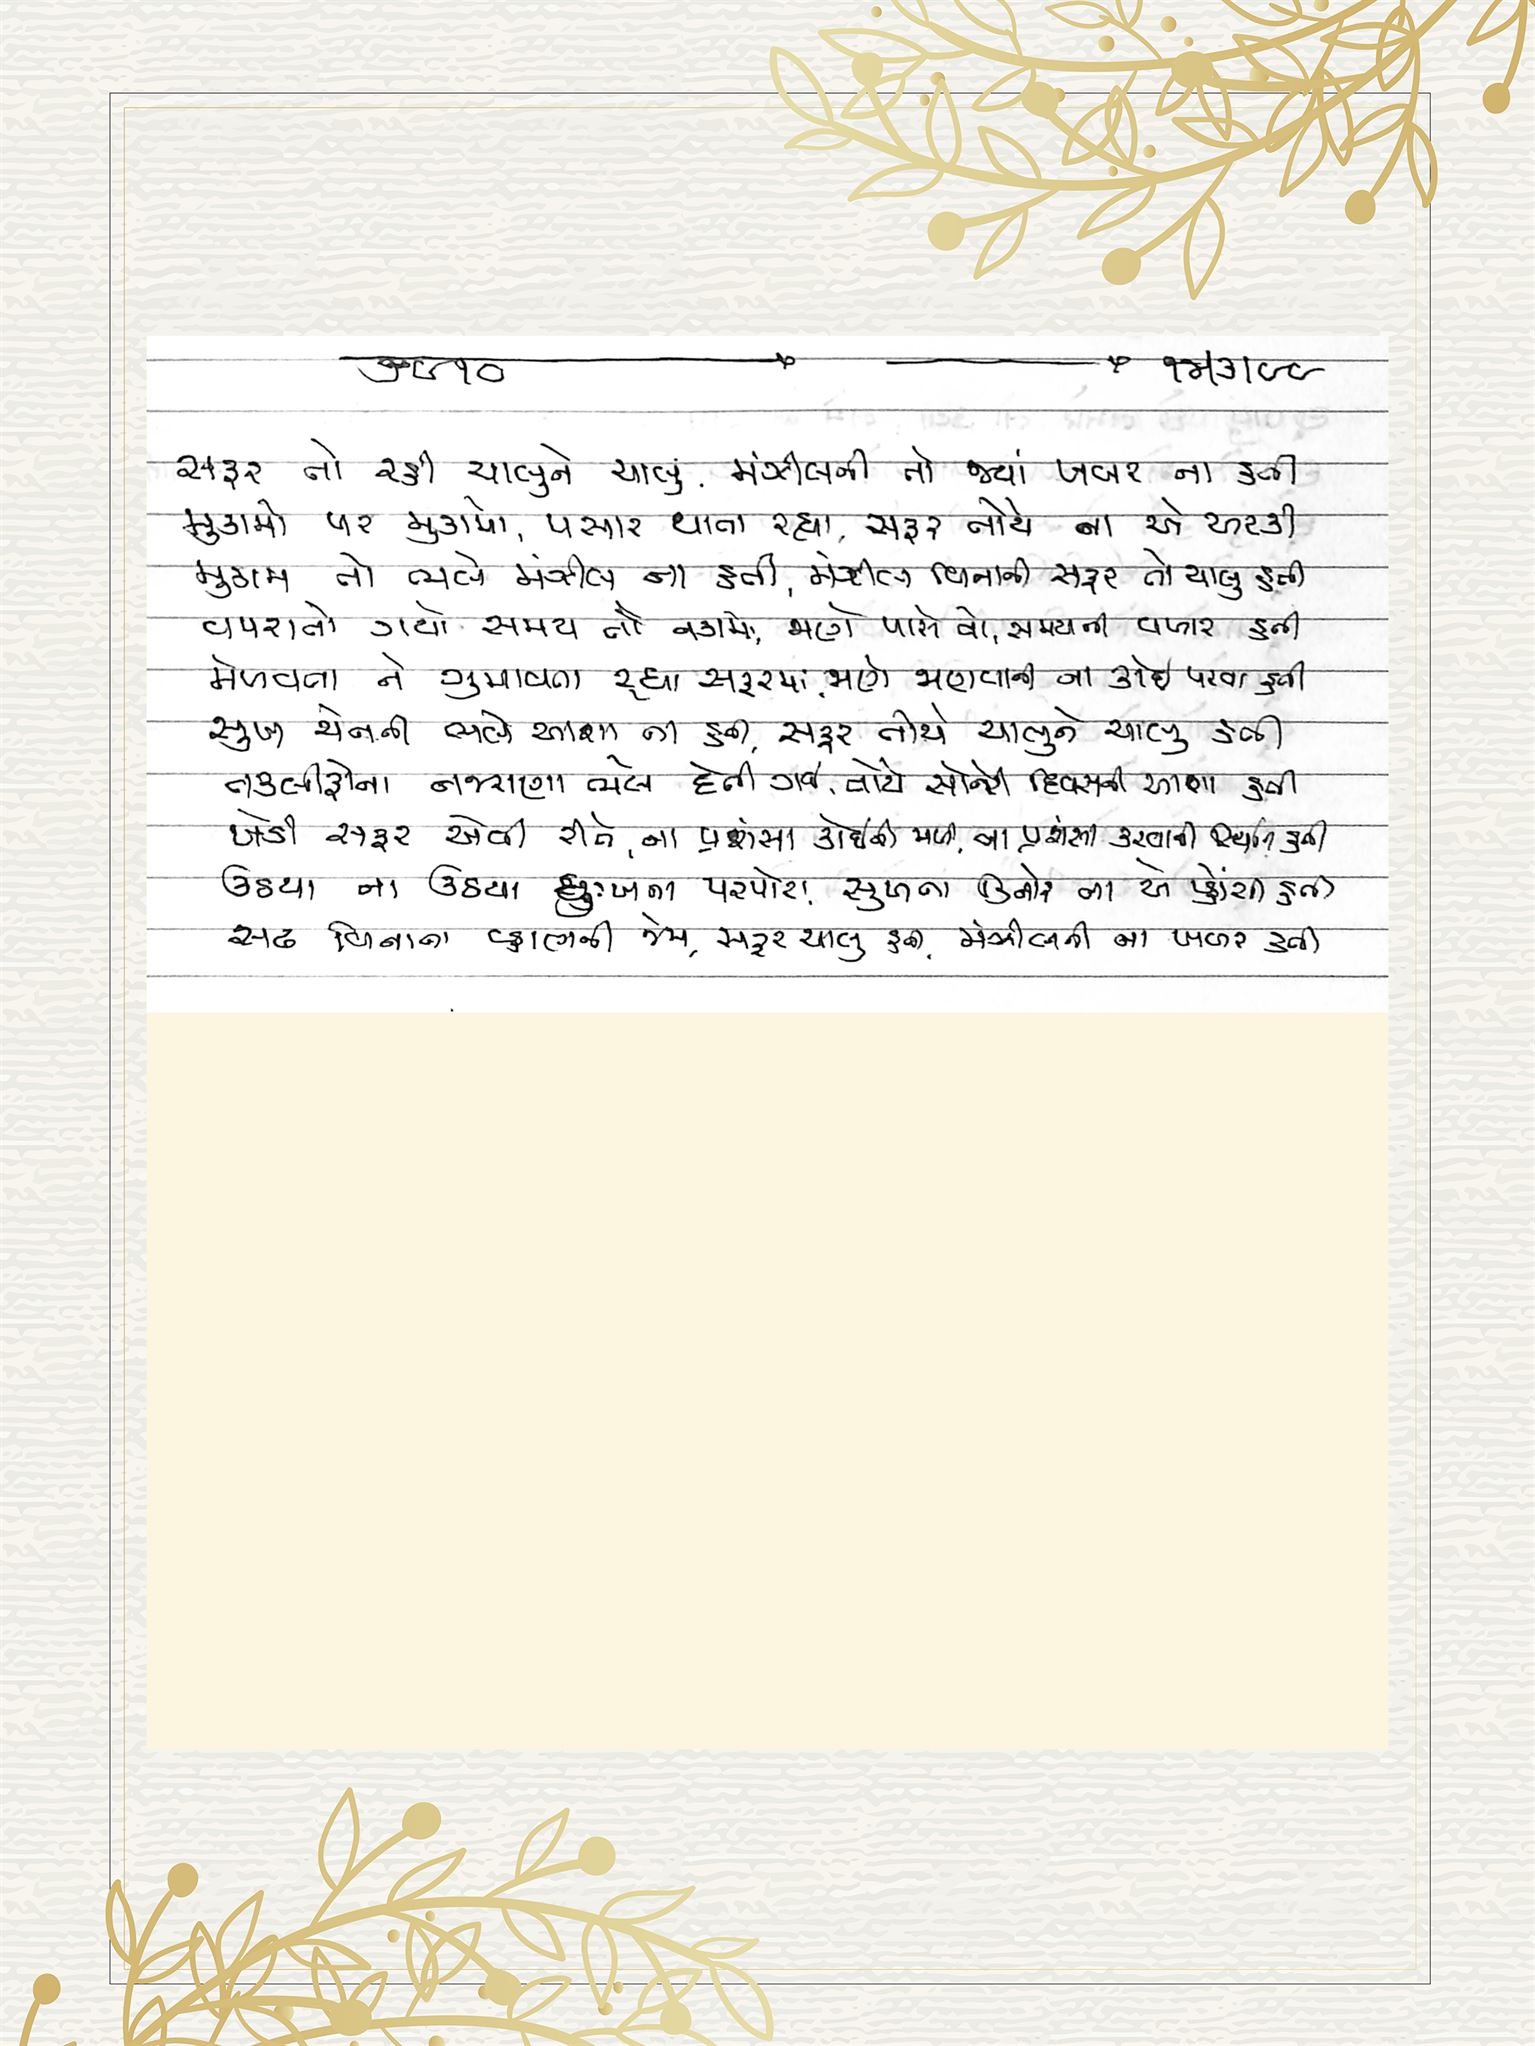 ૭૯૧૦ ૧૫/૩/૯૯
સફર તો રહી ચાલુને ચાલુ. મંઝીલની તો જ્યાં ખબર ના હતી
મુકામો પર મુકામો, પસાર થાતા રહ્યા, સફર તોયે ના એ અટકી
મુકામ તો ભલે મંઝીલ ના હતી, મંઝીલ વિનાની સફર તો ચાલુ હતી
વપરાતો ગયો સમય તો નકામો, ભણો પાસે વો, સમયની વણજાર હતી
મેળવતા ને ગુમાવતા રહ્યા સફરમાં, ભણો ભણવાની ના કોઈ પરવા હતી
સુખ ચેનની ભલે આશા ના હતી, સફર તોયે ચાલુને ચાલુ હતી
તકલીફોના નજરાણા ભલે દેતી ગઈ, તોયે સોનેરી દિવસની આશા હતી
ખેડી સફર એવી રીતે, ના પ્રશંસા કોઈની મળી, ના પ્રશંસા કરવાની સ્થિતિ હતી
ઉઠયા ના ઉઠયા દુઃખના પરપોટા, સુખના કિનારે ના એ પહોંચી હતી
સઢ વિનાના વ્હાણની જેમ, સફર ચાલુ હતી, મંઝીલની ના ખબર હતી